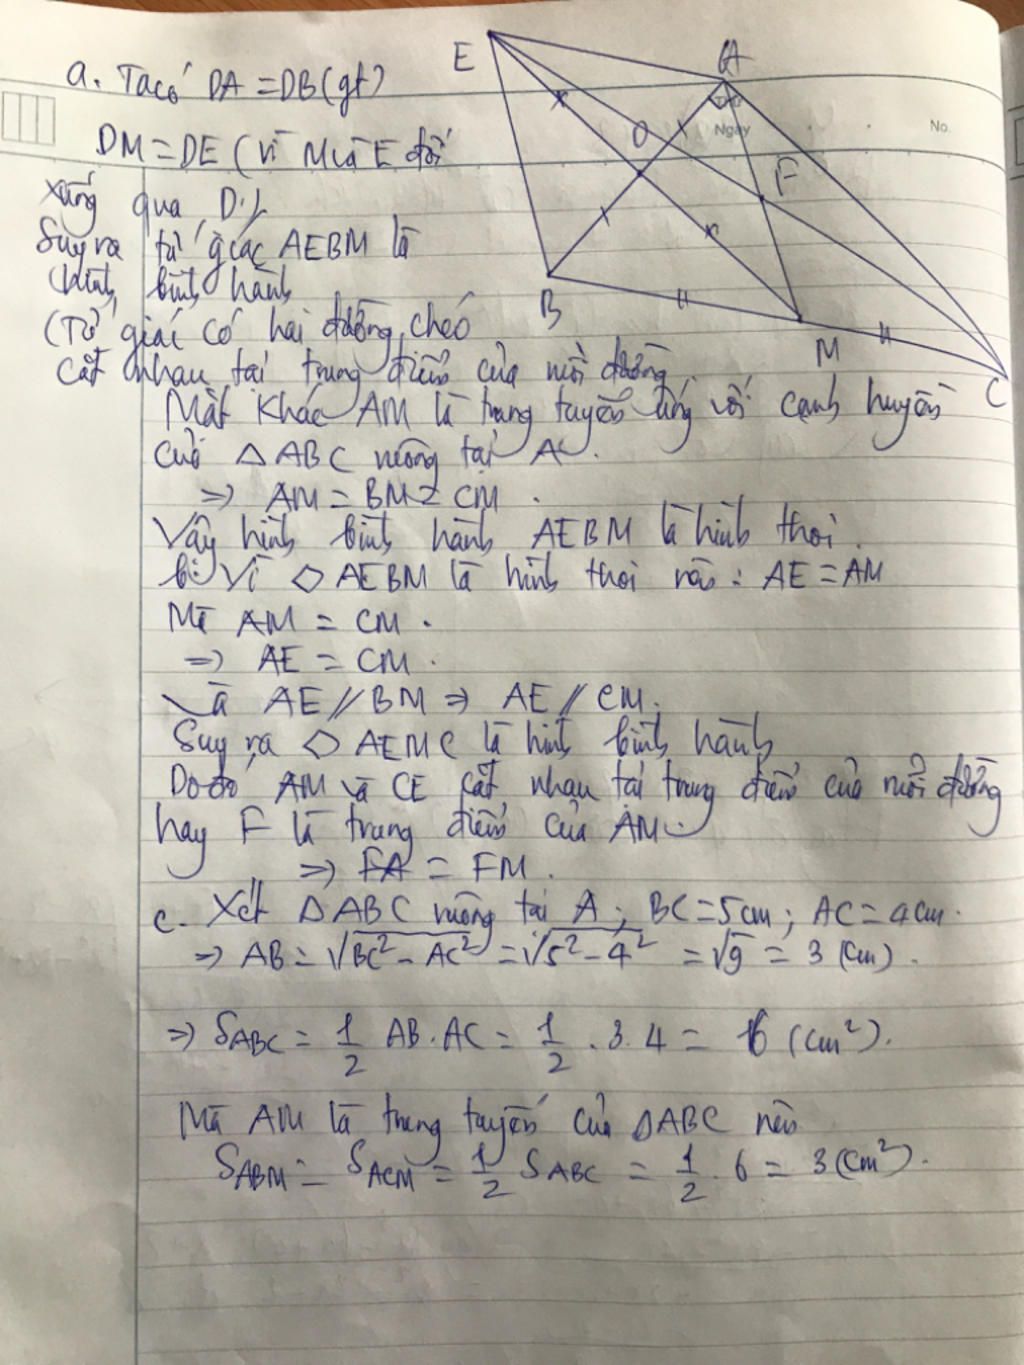 E
A
a. Ta có DA = DB (gt)
Thứ
Ngày
No.
O
DM = DE (vì M và E đối
F
xứng qua D.)
Suy ra tứ giác AEBM là
hình bình hành
B
(Tứ giác có hai đường chéo
M
cắt nhau tại trung điểm của mỗi đường.
C
Mặt khác AM là trung tuyến ứng với cạnh huyền
của △ABC vuông tại A.
=> AM = BM = CM.
Vậy hình bình hành AEBM là hình thoi.
b. Vì ◇ AEBM là hình thoi nên: AE = AM
Mà AM = CM.
=> AE = CM.
Và AE // BM => AE // CM.
Suy ra ◇ AEMC là hình bình hành
Do đó AM và CE cắt nhau tại trung điểm của mỗi đường
hay F là trung điểm của AM.
=> FA = FM.
c. Xét △ABC vuông tại A; BC = 5cm; AC = 4cm.
=> AB = √BC² - AC² = √5² - 4² = √9 = 3 (cm).
=> SABC = 1/2 AB.AC = 1/2 . 3.4 = 6 (cm²).
Mà AM là trung tuyến của △ABC nên
SABM = SACM = 1/2 SABC = 1/2 . 6 = 3 (cm²).